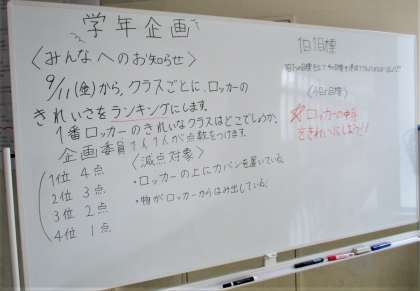 学年企画
〈みんなへのお知らせ〉
9/11(金)から、クラスごとに、ロッカーの
きれいさをランキングにします。
1番ロッカーのきれいなクラスはどこでしょうか、
企画委員1人1人が点数をつけます。
1位 4点
2位 3点
3位 2点
4位 1点
〈減点対象〉
・ロッカーの上にカバンを置いている。
・物がロッカーからはみ出している。
1日1目標
〈今日の目標〉
ロッカーの中身
をきれいにしよう!!